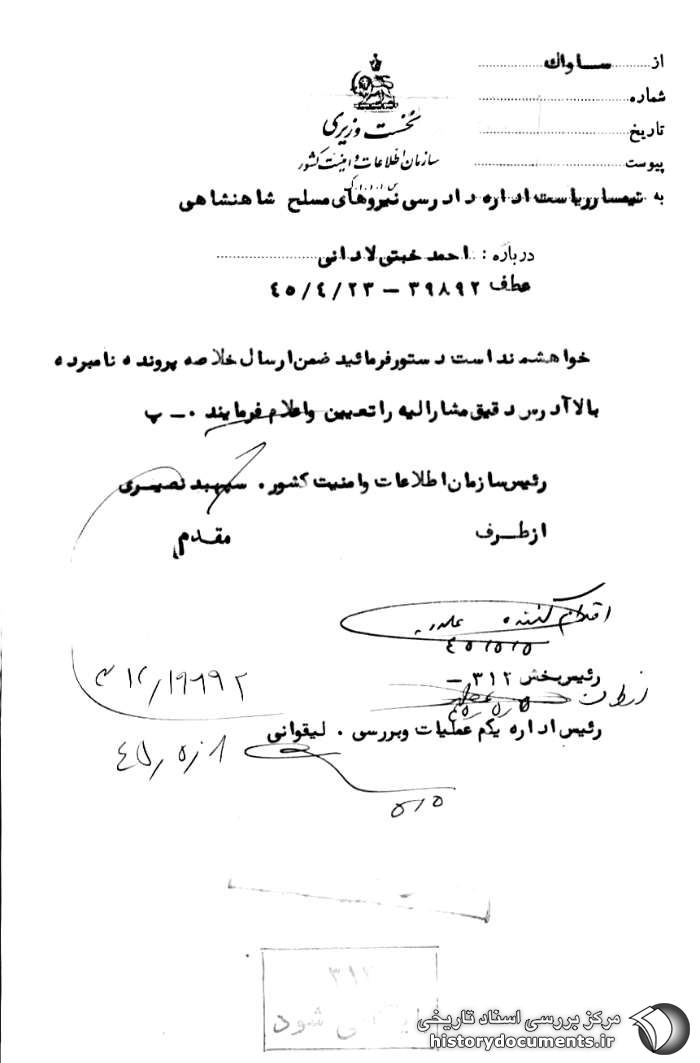 از ساواک
شماره
تاریخ
پیوست
نخست وزیری
سازمان اطلاعات و امنیت کشور
س.ا.و.ا.ک
به تیمسار ریاست اداره دادرسی نیروهای مسلح شاهنشاهی
درباره : احمد خبتی لادانی
عطف ۳۹۸۹۲ – ۴۵/۴/۲۳
خواهشمند است دستور فرمائید ضمن ارسال خلاصه پرونده نامبرده
بالا آدرس دقیق مشارالیه را تعیین واعلام فرمایند ۰ـ پ
رئیس سازمان اطلاعات وامنیت کشور . سپهبد نصیری
از طرف مقدم
اقدام کننده
۴۵/۵/۵
رئیس بخش ۳۱۲ –
از طرف
رئیس اداره یکم عملیات وبررسی . لیقوانی
۵/۵
۳۱۲
شود
مرکز بررسی اسناد تاریخی
historydocuments.ir